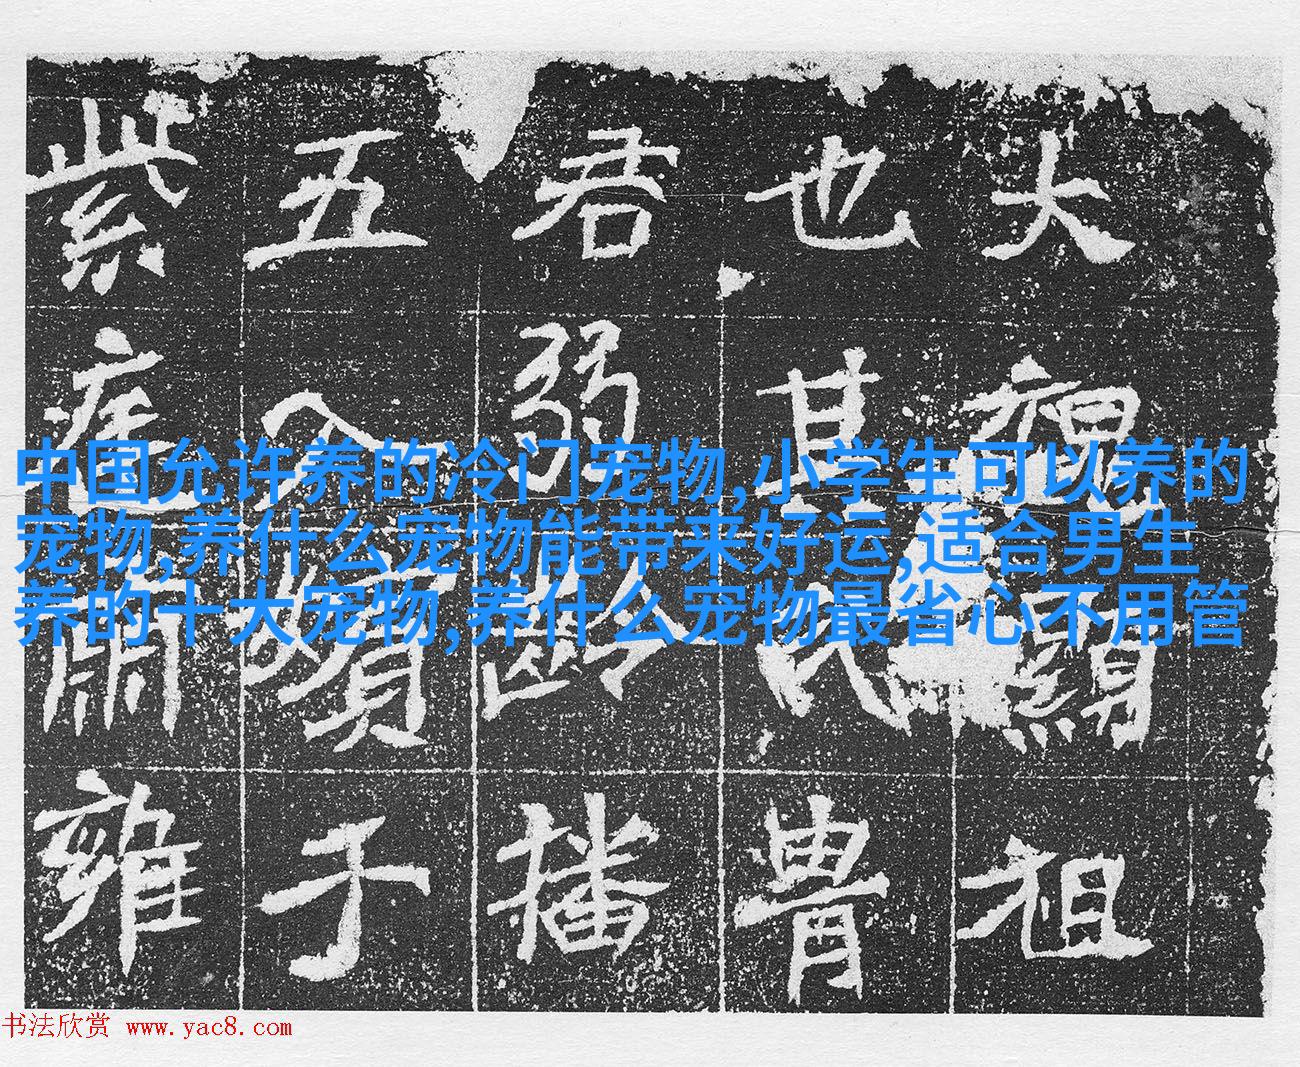 中国允许养的冷门宠物,小学生可以养的
宠物,养什么宠物能带来好运,适合男生
养的十大宠物,养什么宠物最省心不用管
大祖
也其氏胄
君弱齡播
五入嬪于
紫庭肅雍
书法欣赏 www.yac8.com